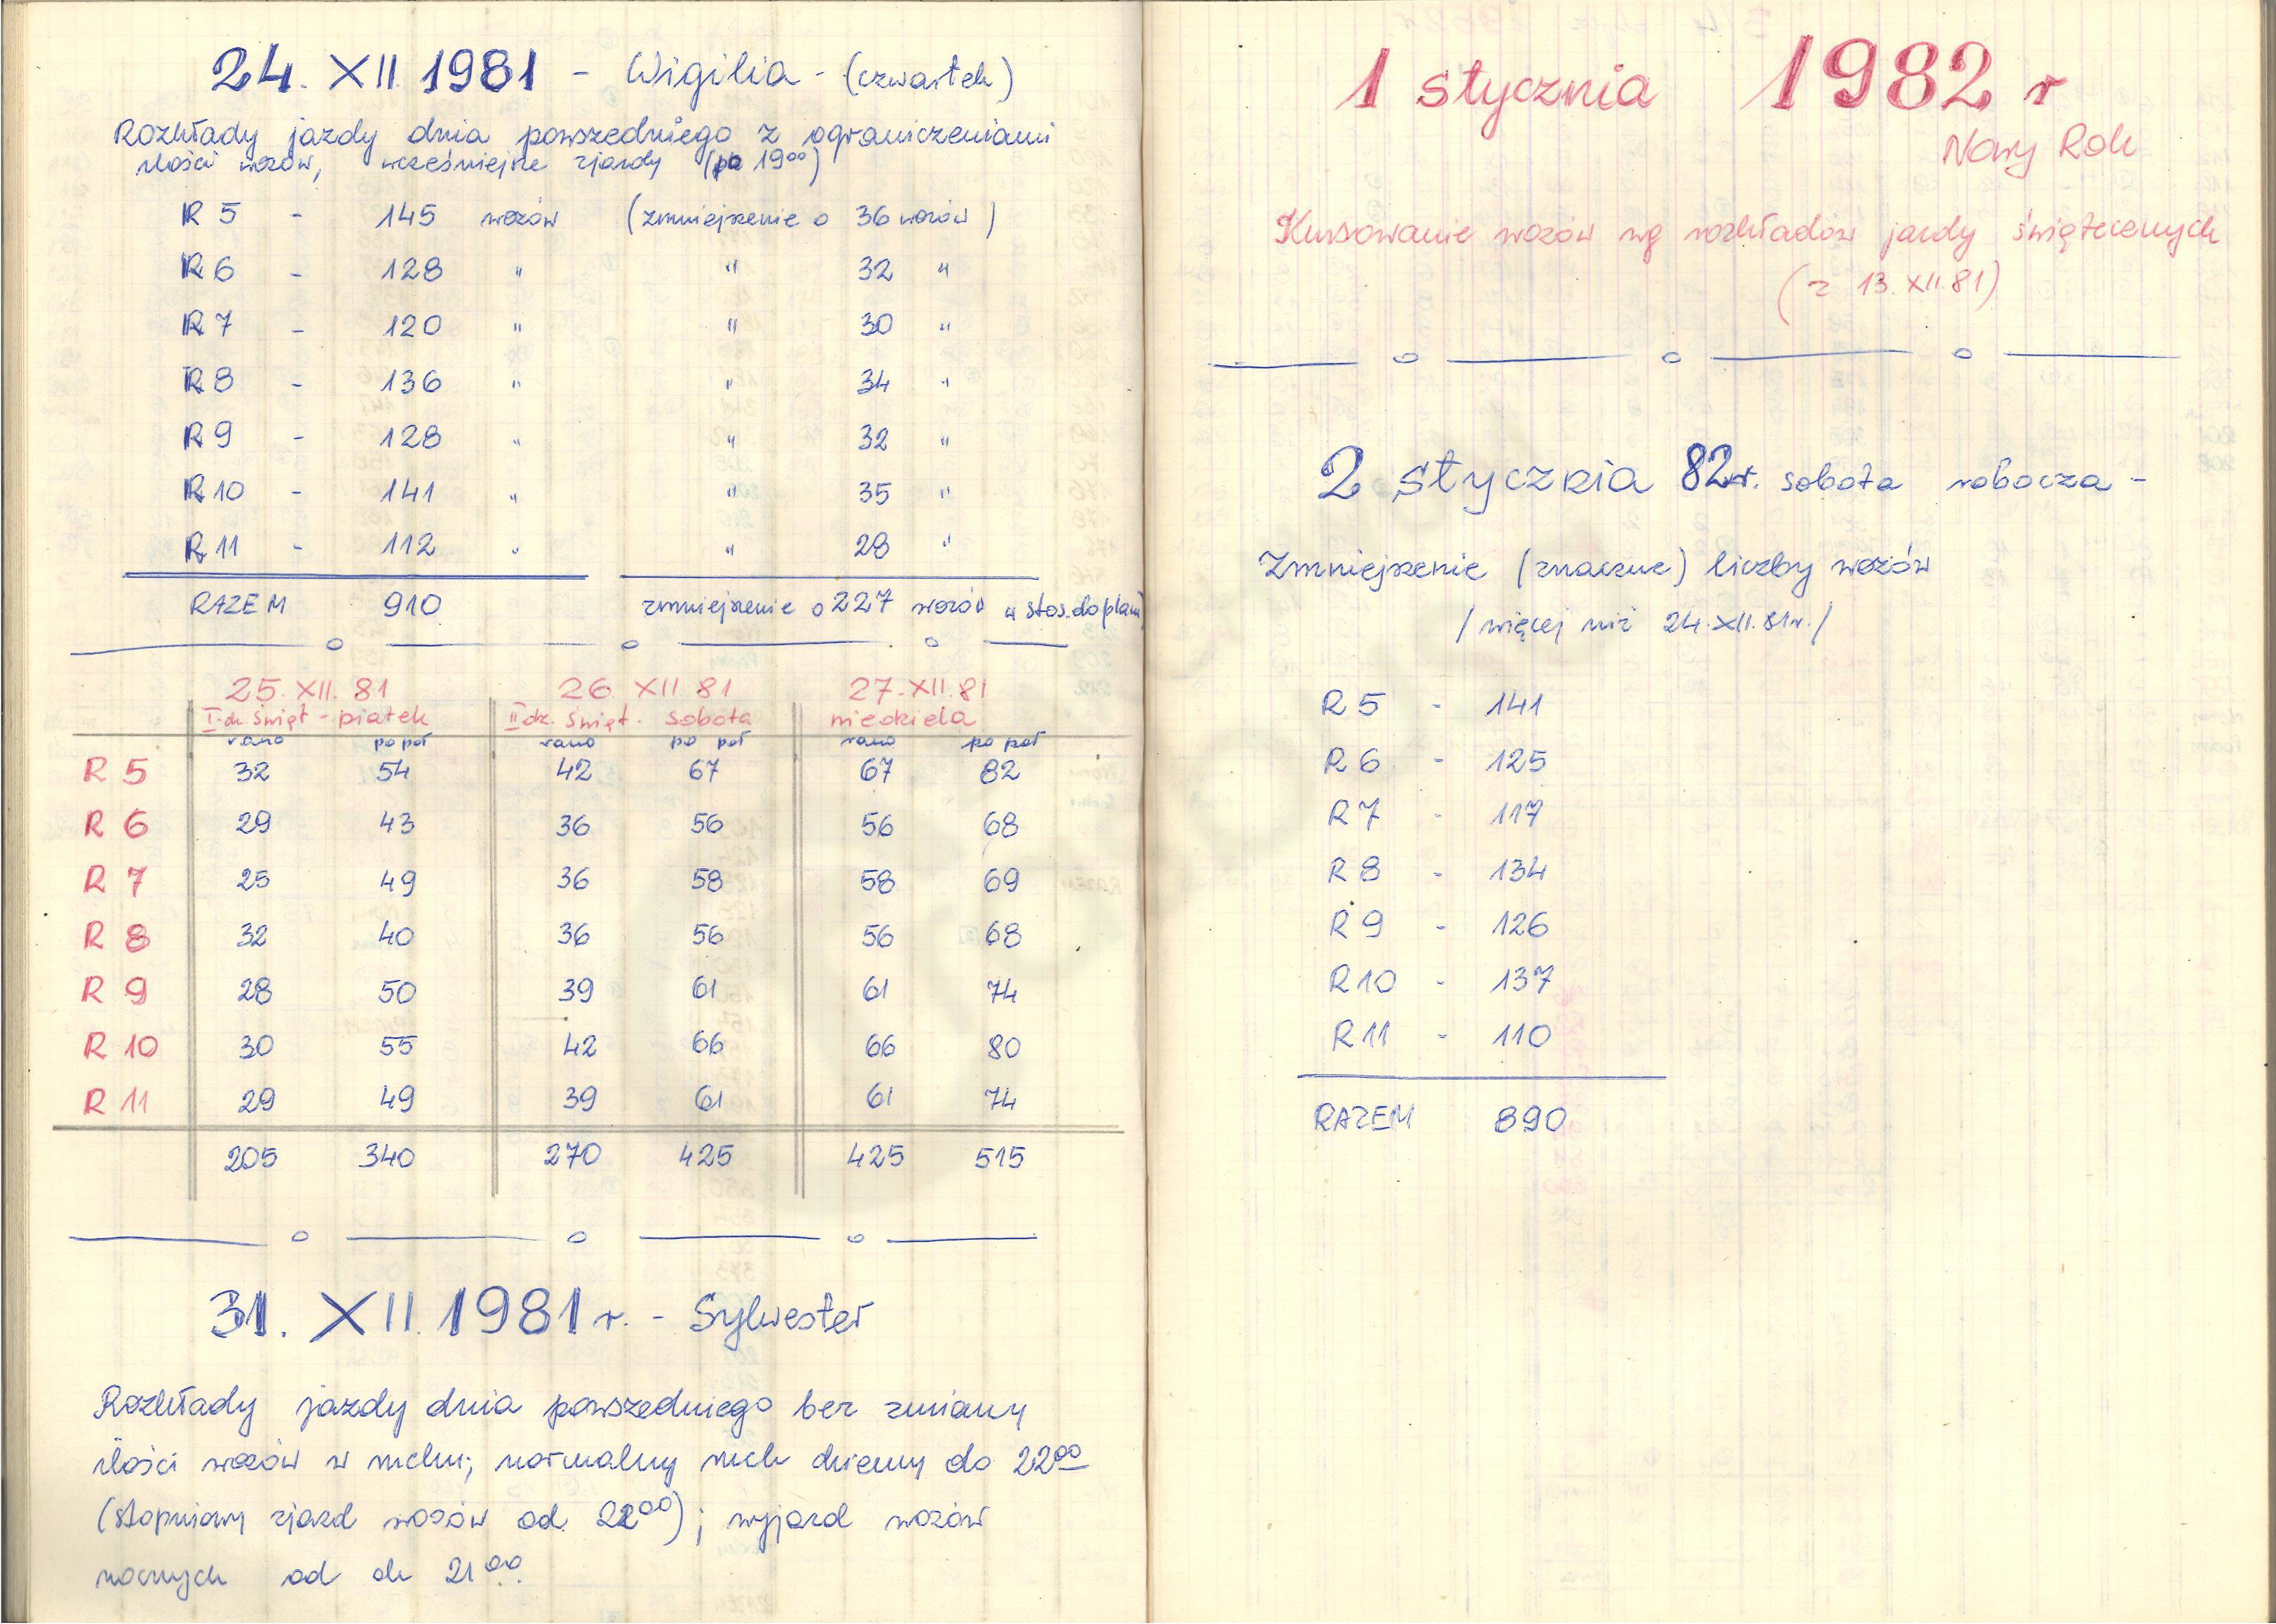 24. XII 1981 - Wigilia - (czwartek)
Rozkłady jazdy dnia powszedniego z ograniczeniami
ilości wozów, wcześniejsze zjazdy (po 19⁰⁰)
R 5 - 145 wozów (zmniejszenie o 36 wozów)
R 6 - 128 " " 32 "
R 7 - 120 " " 30 "
R 8 - 136 " " 34 "
R 9 - 128 " " 32 "
R 10 - 141 " " 35 "
R 11 - 112 " " 28 "
RAZEM 910 zmniejszenie o 227 wozów w stos. do planu
25. XII. 81 26. XII 81 27. XII. 81
I. dz. świąt - piątek II dz. świąt. sobota niedziela
rano po poł rano po poł rano po poł
R 5 32 54 42 67 67 82
R 6 29 43 36 56 56 68
R 7 25 49 36 58 58 69
R 8 32 40 36 56 56 68
R 9 28 50 39 61 61 74
R 10 30 55 42 66 66 80
R 11 29 49 39 61 61 74
205 340 270 425 425 515
31. XII. 1981 r. - Sylwester
Rozkłady jazdy dnia powszedniego bez zmiany
ilości wozów w ruchu; normalny ruch dzienny do 22⁰⁰
(stopniowy zjazd wozów od 22⁰⁰); wyjazd wozów
nocnych od ok 21⁰⁰.
1 stycznia 1982 r
Nowy Rok
Kursowanie wozów wg rozkładów jazdy świątecznych
(z 13. XII. 81)
2 stycznia 82r. sobota robocza -
Zmniejszenie (znaczne) liczby wozów
/ więcej niż 24. XII. 81r. /
R 5 - 141
R 6 - 125
R 7 - 117
R 8 - 134
R 9 - 126
R 10 - 137
R 11 - 110
RAZEM 890